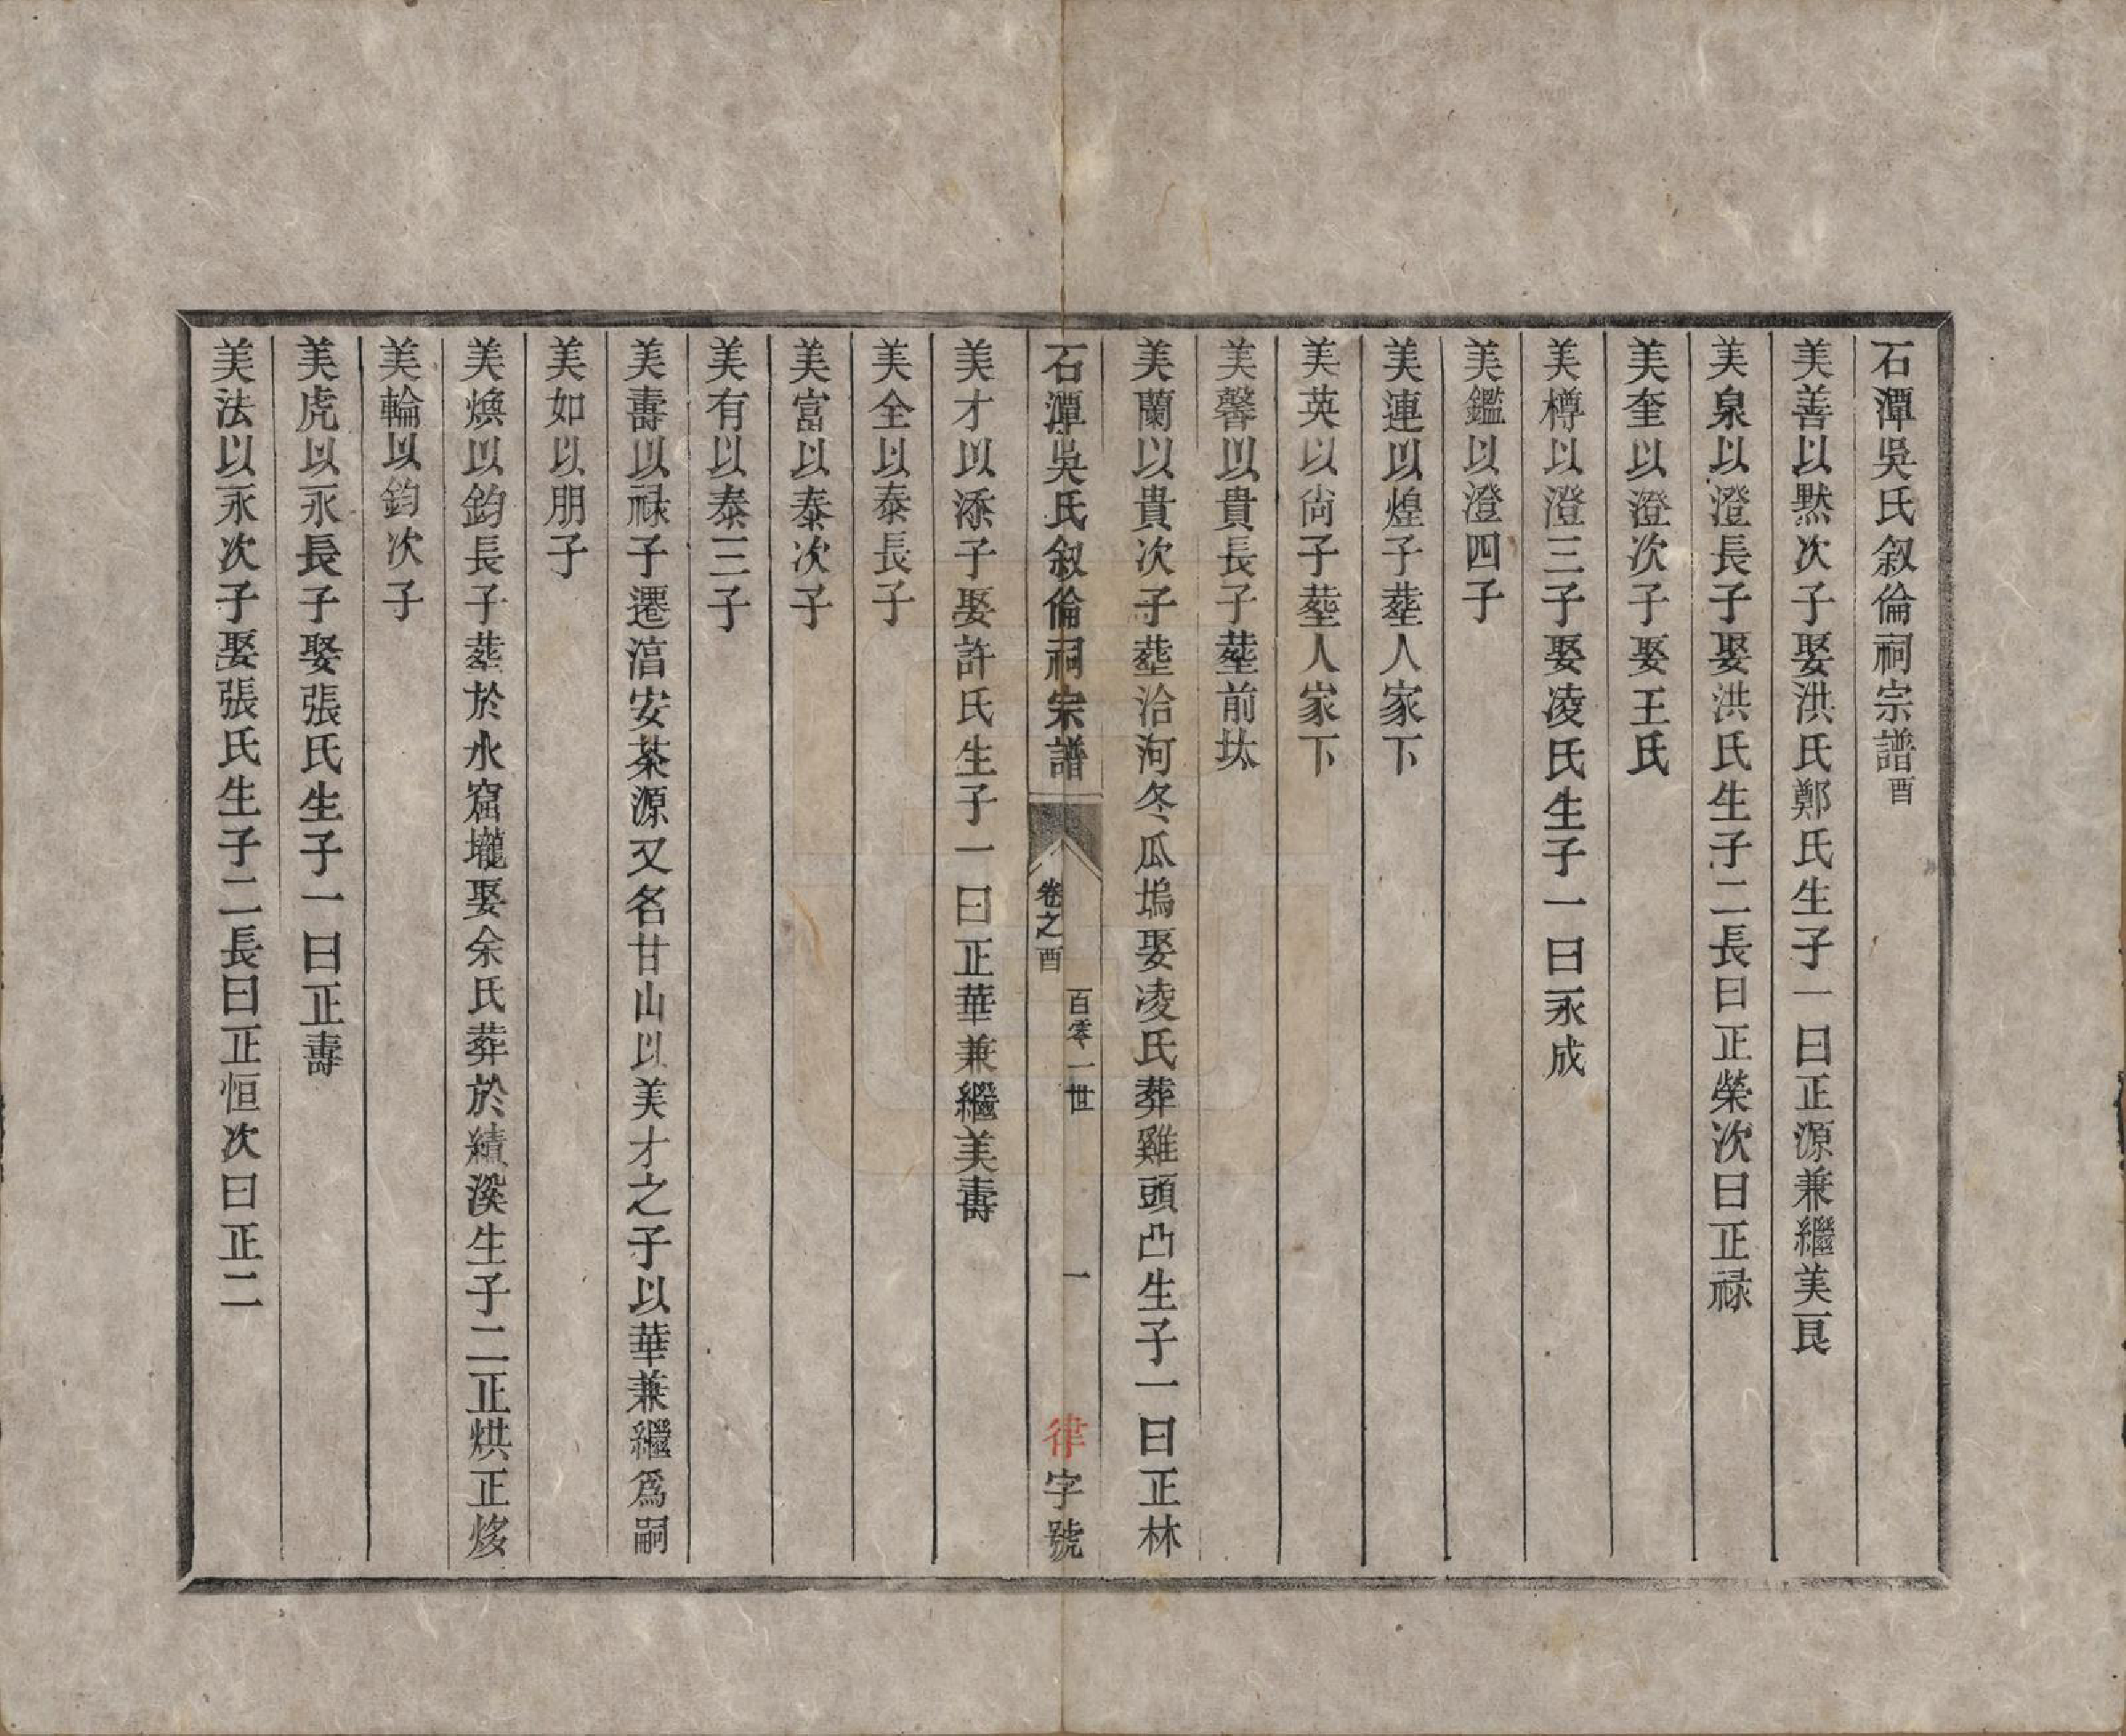 石潭吳氏叙倫祠宗譜酉
美善以黙次子娶洪氏鄭氏生子一曰正源兼繼美良
美泉以澄長子娶洪氏生子二長曰正榮次曰正禄
美奎以澄次子娶王氏
美樽以澄三子娶凌氏生子一曰永成
美鑑以澄四子
美連以煌子塟人家下
美英以尚子塟人家下
美馨以貴長子塟前㘨
美蘭以貴次子塟洽河冬瓜塢娶凌氏葬雞頭凸生子一曰正林
石潭吳氏叙倫祠宗譜
卷之酉
百零一世
一
律字號
美才以添子娶許氏生子一曰正華兼繼美壽
美全以泰長子
美富以泰次子
美有以泰三子
美壽以禄子遷湻安茶源又名甘山以美才之子以華兼繼為嗣
美如以朋子
美煥以鈞長子塟於水窟壠娶余氏葬於績溪生子二正烘正烗
美輪以鈞次子
美虎以永長子娶張氏生子一曰正壽
美法以永次子娶張氏生子二長曰正恒次曰正二